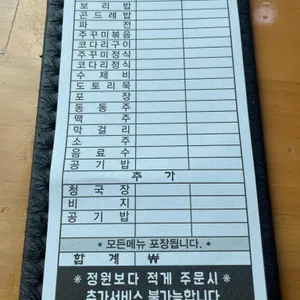 보 리 밥
곤 드 레 밥
파 전
주꾸미볶음
코다리구이
주꾸미정식
코다리정식
수 제 비
도 토 리 묵
포 장
동 동 주
맥 주
막 걸 리
소 주
음 료 수
공 기 밥
추 가
청 국 장
비 지
공 기 밥
* 모든메뉴 포장됩니다. *
합 계 ₩
※ 정원보다 적게 주문시 ※
추가서비스 불가능합니다